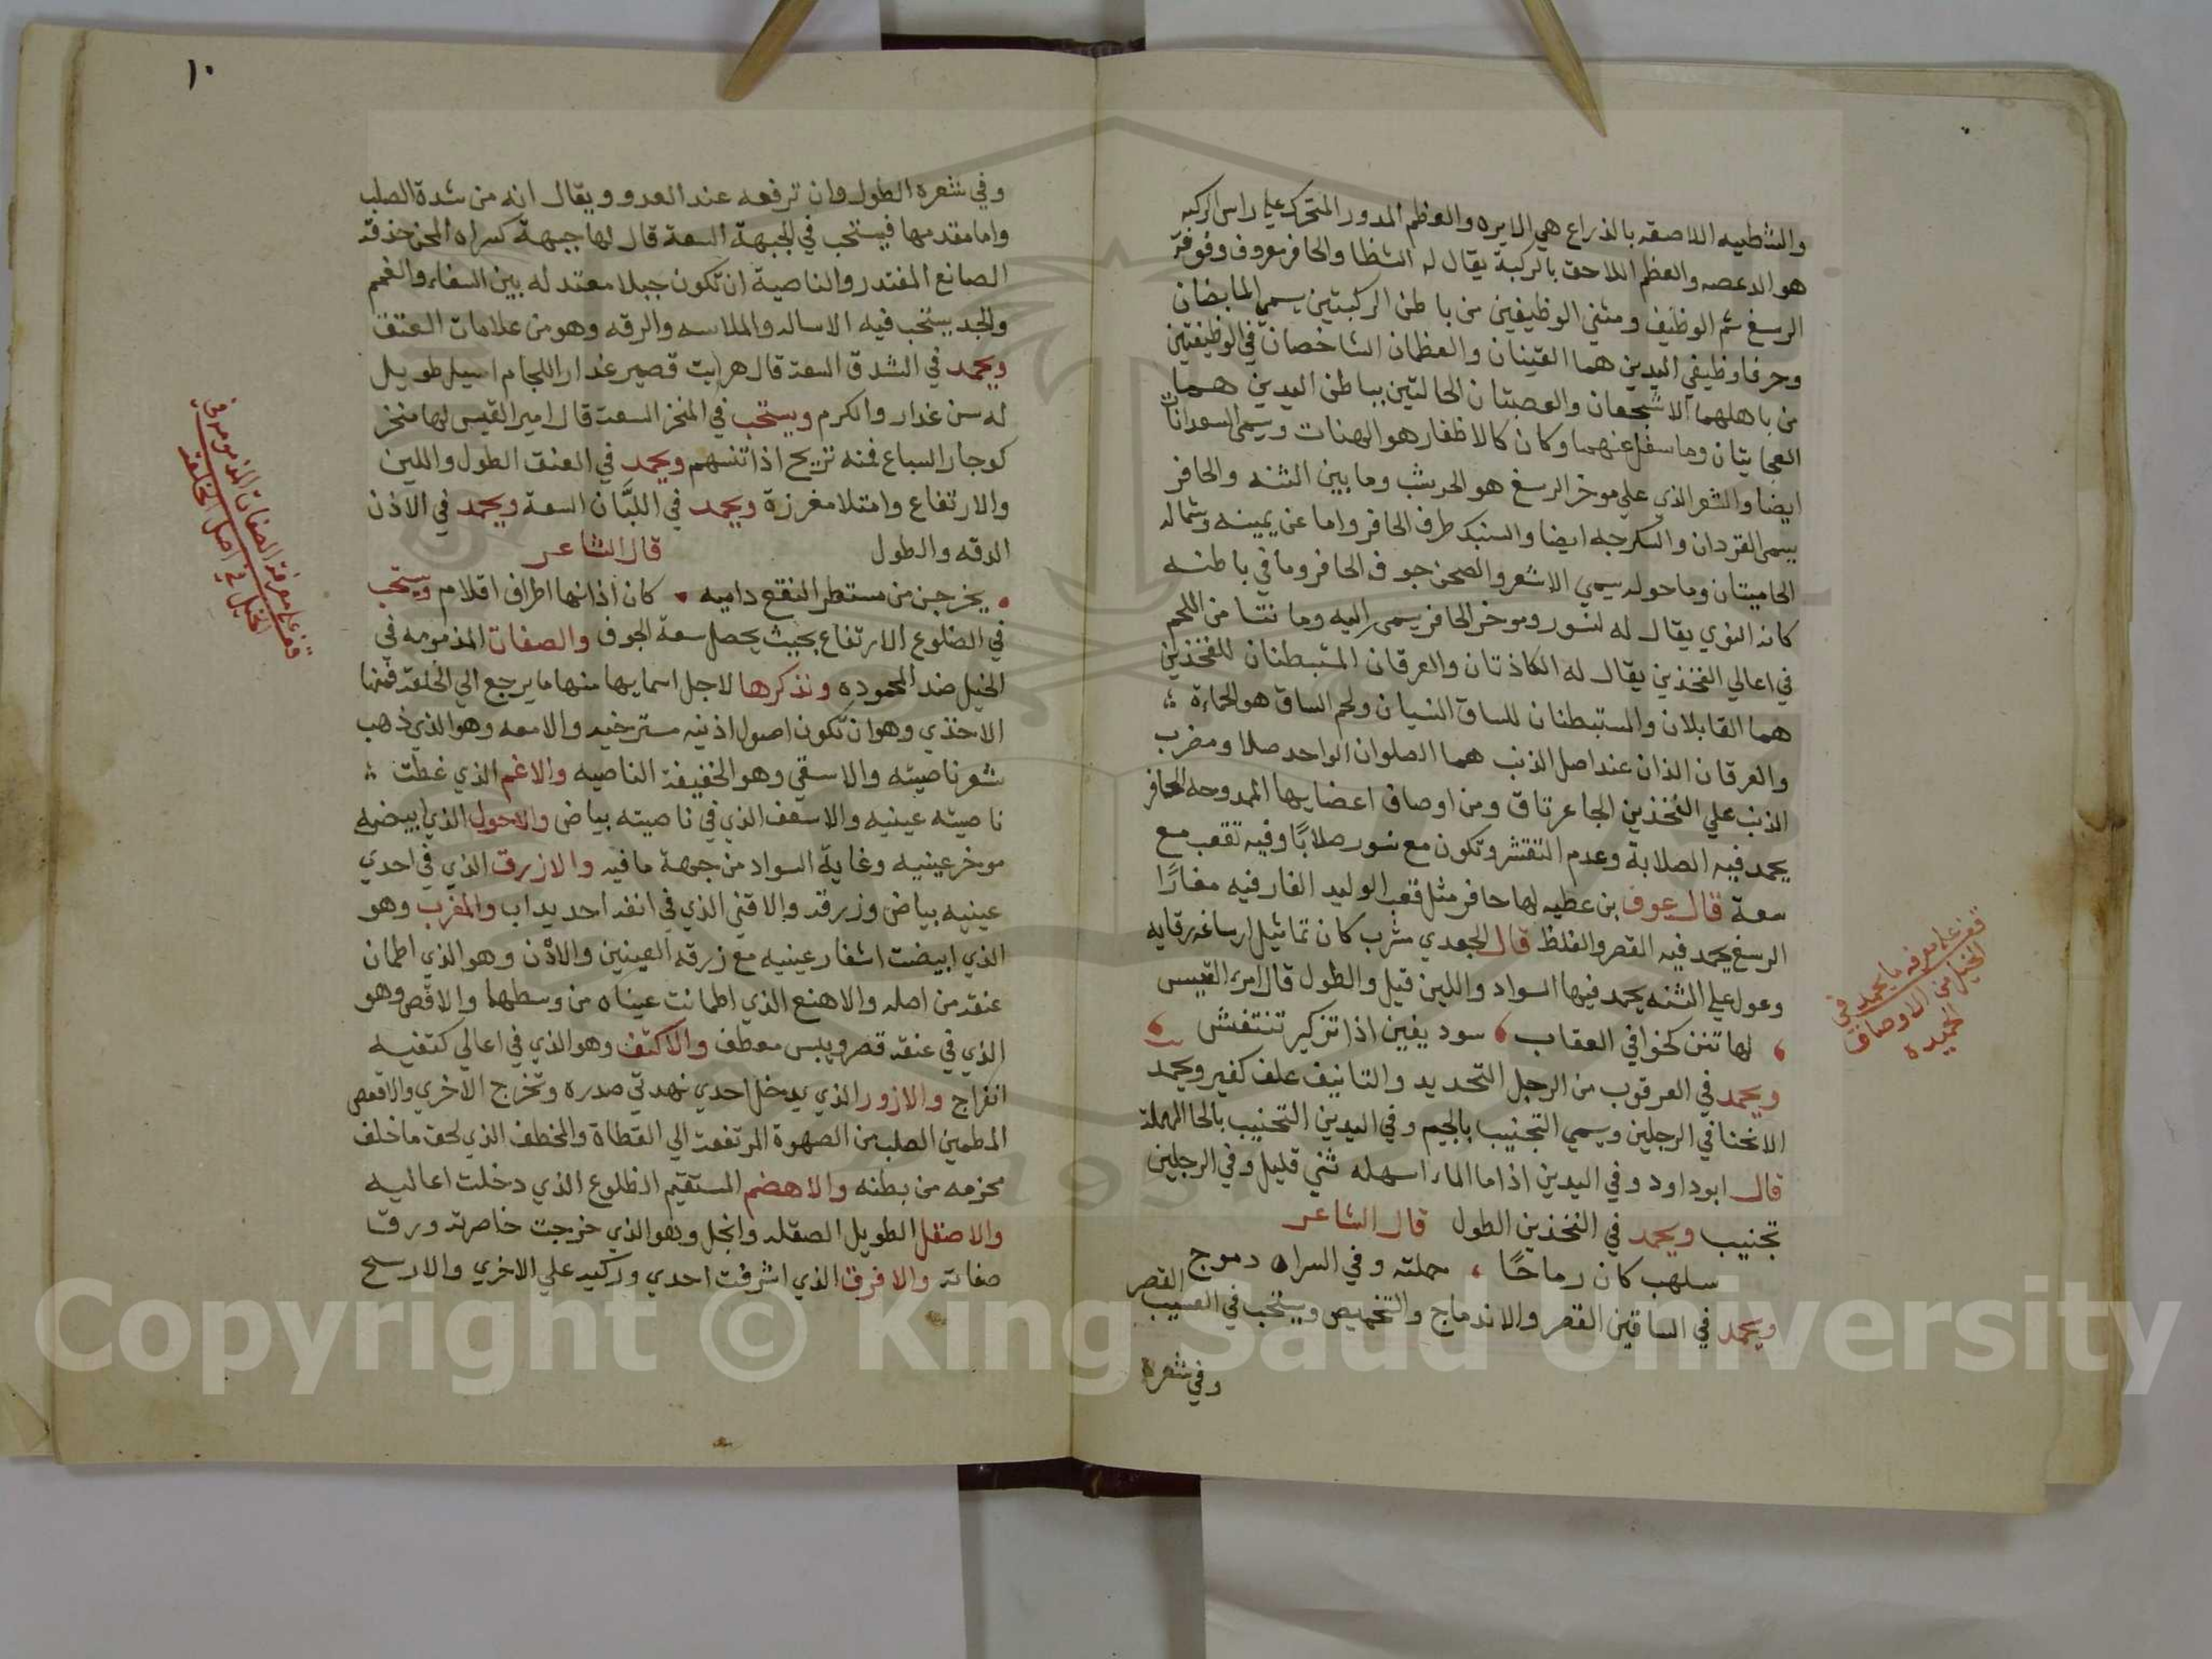 والشظيه اللاصقه بالذراع هي الابره والعظم المدور المتحرك علي راس الركبه
هو الدعصه والعظم اللاحق بالركبة يقال له الشظا والحافر معروف وفوقه
الرسغ ثم الوظيف ومثني الوظيفين من باطن الركبتين يسمي المابضان
وحرفا وظيفي اليدين هما القينان والعظمان الشاخصان في الوظيفتين
من باهلهما الاشجعان والعصبتان الحالتين بباطن اليدين هما
العجايتان وما سفل عنهما وكان كالاظفار هو الهنات وسمي السعدانات
ايضا والشعر الذي علي موخر الرسغ هو الحريشب وما بين الثنه والحافر
يسمي القردان والسكرجه ايضا والسنبك طرف الحافر واما عن يمينه وشماله
الحاميتان وما حوله يسمي الاشعر والصحن جوف الحافر وما في باطنه
كانه النوي يقال له لنسور وموخر الحافر يسمي اليه وما نتا من اللحم
في اعالي الفخذين يقال له الكاذتان والعرقان المتبطنان للفخذين
هما القابلان والمستبطنان للساق النسيان ولحم الساق هو الحماءة
والعرقان الذان عند اصل الذنب هما الصلوان الواحد صلا ومضرب
الذنب علي الفخذين الجاعرتاق ومن اوصاف اعضايها الممدوحه الحافر
يحمد فيه الصلابة وعدم التقشر وتكون مع نسور صلابًا وفيه تقعب مع
سعة قال عوف بن عطيه لها حافر مثل قعب الوليد الفار فيه مغارًا
الرسغ يحمد فيه القصر والغلظ قال الجعدي مثرب كان تماثيل ارساغه رقايه
وعول علي الثنه يحمد فيها السواد واللين قيل والطول قال امرء القيس
لها تنن كخوافي العقاب سود يفين اذا تزكير تنتفش
ويحمد في العرقوب من الرجل التحديد والتانيف علف كفير ويحمد
الانحنا في الرجلين ويسمي التجنيب بالجيم وفي اليدين التحنيب بالحا المهملة
قال ابو داود وفي اليدين اذا ما الماء اسهله ثني قليل وفي الرجلين
تجنيب ويحمد في الفخذين الطول قال الشاعر
سلهب كان رماحًا حملته وفي السراه دموج
ويحمد في الساقين القصر والاندماج والتحميص ويستحب في العسيب القصر
وفي شعره
قف على معرفه ما يحمد في
الخيل من الاوصاف
الحميده
١٠
وفي شعره الطول وان ترفعه عند العدو ويقال انه من شدة الصلب
واما مقدمها فيستحب في الجبهة السعة قال لها جبهة كسراه المجن حذقه
الصانع المقتدر والناصية ان تكون جبلا معتدله بين السفاء والغمم
والخد يستحب فيه الاساله والملاسه والرقه وهو من علامات العتق
ويحمد في الشدق السعة قال هريت قصير عذار اللجام اسيل طويل
له سن غدار والكرم ويستحب في المنخر السعة قال امير القيس لها منخر
كوجار السباع فمنه تريح اذا تنسهم ويحمد في العنق الطول واللين
والارتفاع وامتلا مغرزة ويحمد في اللبَّان السعة ويحمد في الاذن
الدقه والطول قال الشاعر
يخرجن من مستطر النقع داميه كان اذانها اطراف اقلام ويستحب
في الضلوع الارتفاع بحيث يحصل سعة الجوف والصفات المذمومه في
الخيل ضد المحموده ونذكرها لاجل اسمايها منها ما يرجع الي الخلقة فمنها
الاخذي وهو ان تكون اصول اذنيه مسترخيه والامعه وهو الذي ذهب
شعر ناصيته والاسقي وهو الخفيفة الناصيه والاغم الذي غطت
ناصيته عينيه والاسعف الذي في ناصيته بياض والاحول الذي ابيضه
موخر عينيه وغاية السواد من جهة مافيه والازرق الذي في احدي
عينيه بياض وزرقه والاقني الذي في انفه احديداب والمغرب وهو
الذي ابيضت اشفار عينيه مع زرقه العينين والاذن وهو الذي اطمان
عنقه من اصله والاهنع الذي اطمانت عيناه من وسطهما والاقص وهو
الذي في عنقه قصر ويبس معطف والاكتف وهو الذي في اعالي كتفيه
انفراج والازور الذي يدخل احدي نهدتي صدره وتخرج الاخري والاقعص
المطمين الصلب من الصهوة المرتفعة الي القطاة والمخطف الذي لحق ما خلف
محزمه من بطنه والاهضم المستقيم الظلوع الذي دخلت اعاليه
والاصقل الطويل الصقله وانجل وهو الذي خرجت خاصرته ورق
صفاته والافرق الذي اشرفت احدي وركيه علي الاخري والارسح
قف على معرفة الصفات المذمومه في
الخيل في اصل الخلقة
Copyright © King Saud University